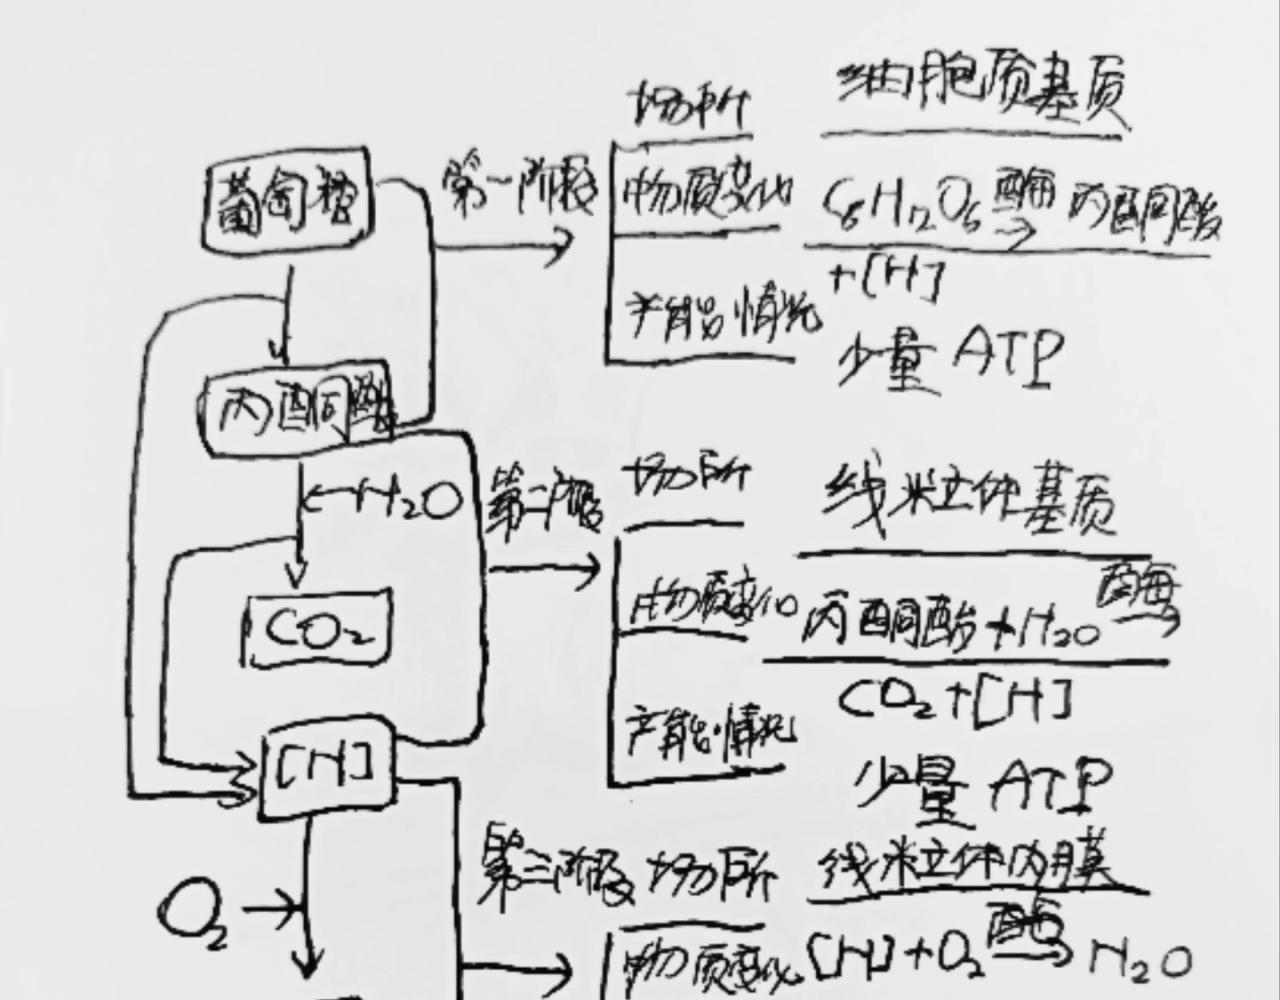 场所 细胞质基质
葡萄糖 第一阶段 物质变化 C₆H₁₂O₆ 酶→ 丙酮酸
+[H]
产能情况 少量 ATP
丙酮酸
H₂O 第二阶段 场所 线粒立体基质
CO₂ 物质变化 丙酮酸+H₂O 酶→
CO₂+[H]
[H] 产能情况 少量 ATP
第三阶段 场所 线粒立体内膜
O₂ 物质变化 [H]+O₂ 酶→ H₂O